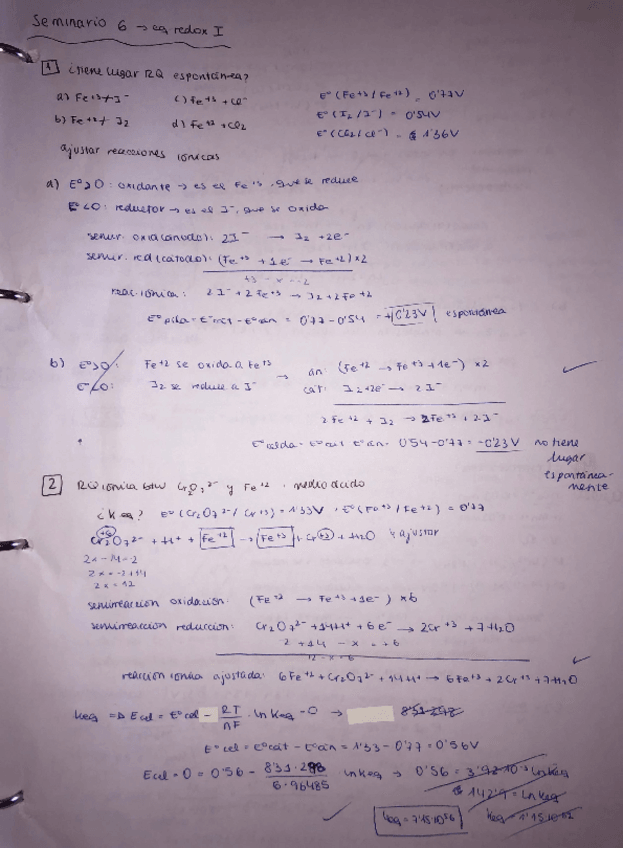 Seminario 6 → eq redox I
1 ¿tiene lugar RQ espontánea?
a) Fe+3 + I- c) Fe+3 + Cl- E°(Fe+3/Fe+2) = 0'77V
b) Fe+2 + I2 d) Fe+2 + Cl2 E°(I2/I-) = 0'54V
E°(Cl2/Cl-) = 1'36V
ajustar reacciones iónicas
a) E°>0: oxidante → es el Fe+3, que se reduce
E°<0: reductor → es el I-, que se oxida
semirr. oxid(ánodo): 2I- → I2 + 2e-
semirr. red(cátodo): (Fe+3 + 1e- → Fe+2)×2
+3 - x = -2
reac. iónica: 2I- + 2Fe+3 → I2 + 2Fe+2
E° pila = E°cat - E°an = 0'77 - 0'54 = +0'23V espontánea
b) E°>0: Fe+2 se oxida a Fe+3 → an: (Fe+2 → Fe+3 + 1e-) ×2
E°<0: I2 se reduce a I- cat: I2 + 2e- → 2I-
2Fe+2 + I2 → 2Fe+3 + 2I-
E°celda = E°cat - E°an = 0'54 - 0'77 = -0'23V no tiene
lugar
espontánea-
mente
2 RQ iónica btw Cr2O7 2- y Fe+2. medio ácido
¿Keq? E°(Cr2O7 2-/Cr+3) = 1'33V, E°(Fe+3/Fe+2) = 0'77
+6
Cr2O7 2- + H+ + Fe+2 → Fe+3 + Cr+3 + H2O ajustar
2x - 14 = -2
2x = -2 + 14
2x = 12
semirreacción oxidación: (Fe+2 → Fe+3 + 1e-) ×6
semirreacción reducción: Cr2O7 2- + 14H+ + 6e- → 2Cr+3 + 7H2O
-2 + 14 - x = +6
12 - x = 6
reacción iónica ajustada: 6Fe+2 + Cr2O7 2- + 14H+ → 6Fe+3 + 2Cr+3 + 7H2O
Keq => Ecel = E°cel - RT/nF · ln Keq = 0 → 8'31·298
E°cel = E°cat - E°an = 1'33 - 0'77 = 0'56V
Ecel = 0 = 0'56 - 8'31·298/6·96485 ln Keq → 0'56 = 3'92·10-3 ln Keq
142'9 = ln Keq
Keq = 7'15·10 56 Keq = 1'15·10 62